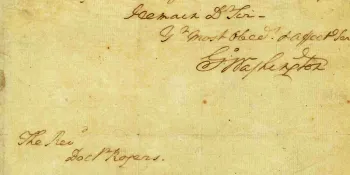 Remain Dr Sir–
Yr most Obedt & affecte Ser
Go: Washington
The Revd
Doctr Rogers.